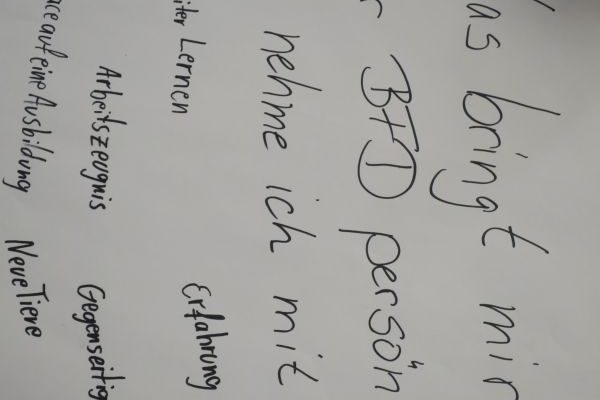 as bringt mir
r BFD persön
nehme ich mit
iter Lernen Erfahrung
Arbeitszeugnis Gegenseitig
ce auf eine Ausbildung Neue Tiere